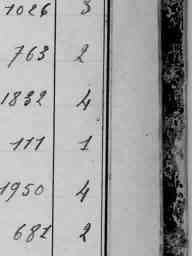 1026 3
763 2
1832 4
111 1
1950 4
681 2